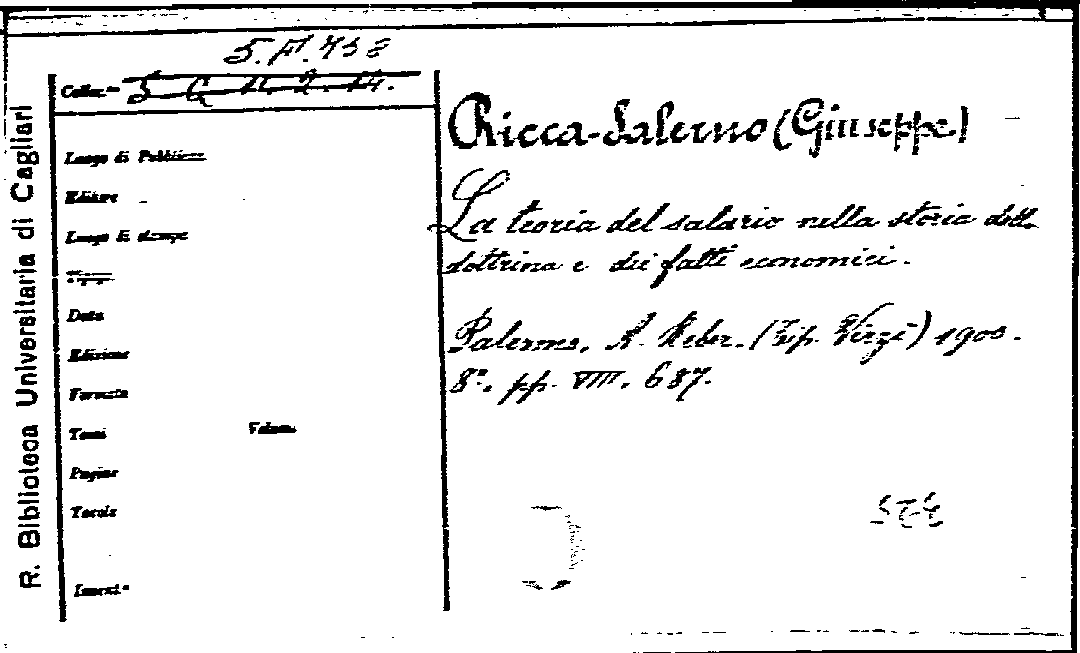 R. Biblioteca Universitaria di Cagliari
5.F.738
Colloc.ne 5 G 11. 2. 14.
Luogo di Pubblicaz.
Editore
Luogo di stampa
Data
Edizione
Formato
Tomi Volumi
Pagine
Tavole
Ricca-Salerno (Giuseppe)
La teoria del salario nella storia delle
dottrine e dei fatti economici.
Palermo, A. Reber. (Tip. Virzì) 1900.
8°. pp. VIII. 687.